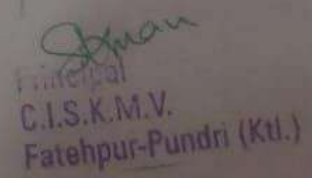 Principal
C.I.S.K.M.V.
Fatehpur-Pundri (Ktl.)